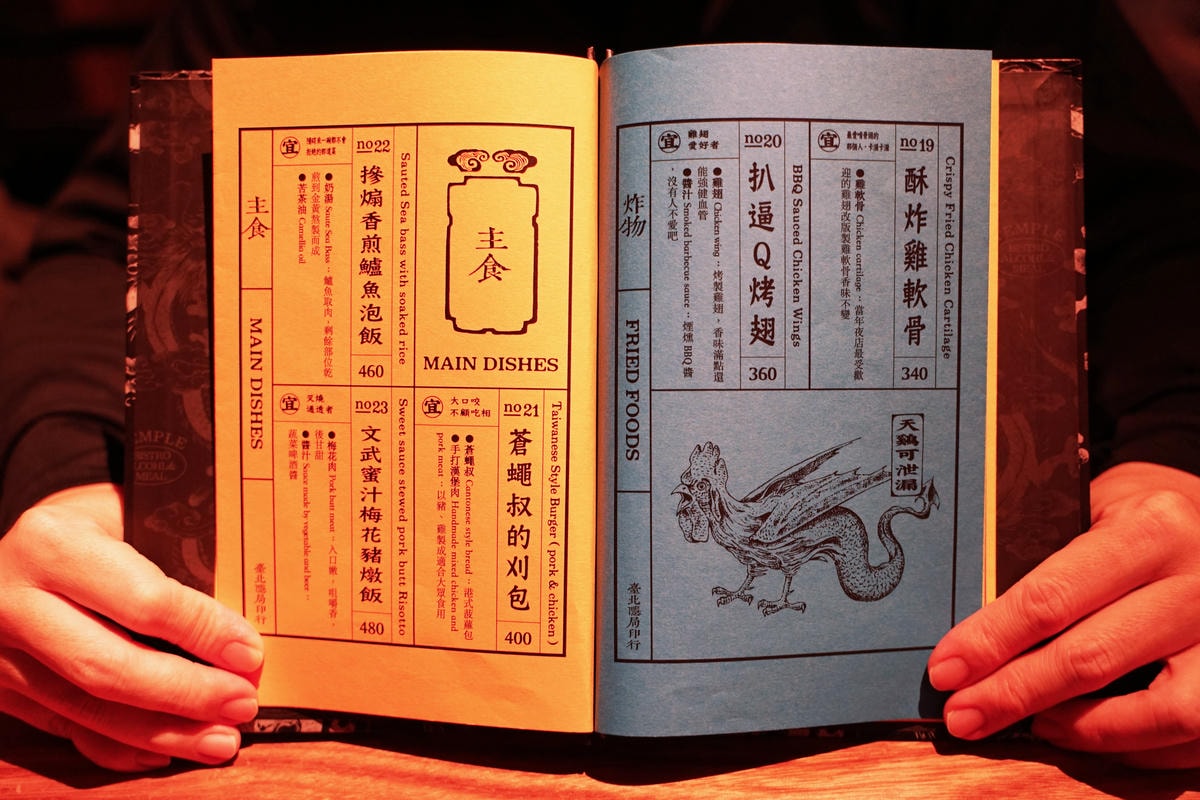 no 19
酥炸雞軟骨
340
Crispy Fried Chicken Cartilage
最愛啃骨頭的
那個人，卡滋卡滋
●雞軟骨 Chicken cartilage：當年夜店最受歡
迎的雞翅改版製雞軟骨香味不變
no 20
扒逼Q烤翅
360
BBQ Sauced Chicken Wings
宜
雞翅
愛好者
●雞翅 Chicken wing：烤製雞翅，香味滿點還
能強健血管
●醬汁 Smoked barbecue sauce：煙燻 BBQ 醬
，沒有人不愛吧
天鷄可泄漏
炸物
FRIED FOODS
臺北應局印行
主食
MAIN DISHES
no 21
蒼蠅叔的刈包
400
Taiwanese Style Burger ( pork & chicken )
宜
大口咬
不顧吃相
●蒼蠅叔 Cantonese style bread：港式菠蘿包
●手打漢堡肉 Handmade mixed chicken and
pork meat：以豬、雞製成適合大眾食用
no 22
摻煽香煎鱸魚泡飯
460
Sauted Sea bass with soaked rice
宜
●奶湯 Saute Sea Bass：鱸魚取肉，剩餘部位乾
煎到金黃熬製而成
●苦茶油 Camellia oil
no 23
文武蜜汁梅花豬燉飯
480
Sweet sauce stewed pork butt Risotto
宜
叉燒
通透者
●梅花肉 Pork butt meat：入口嫩，咀嚼香，
後甘甜
●醬汁 Sauce made by vegetable and beer：
蔬菜啤酒醬
主食
MAIN DISHES
臺北應局印行